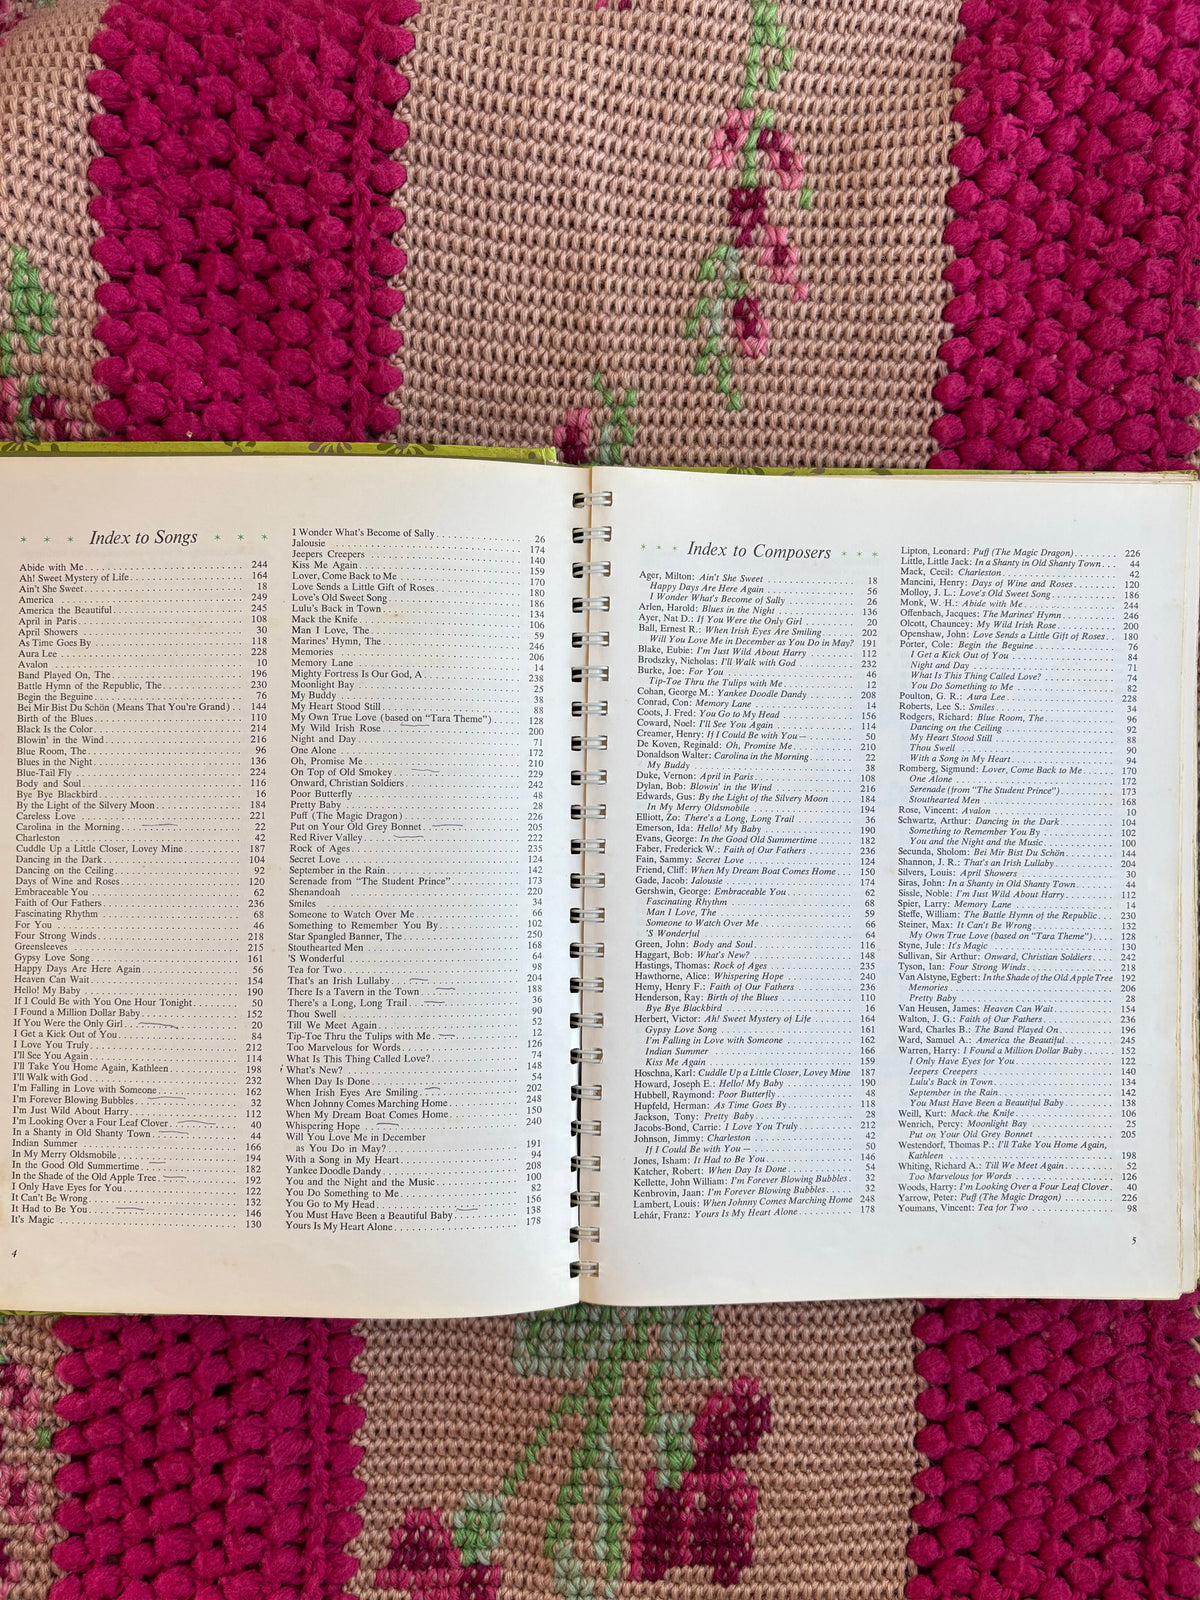 * * * Index to Songs * * *
Abide with Me 244
Ah! Sweet Mystery of Life 164
Ain't She Sweet 18
America 249
America the Beautiful 245
April in Paris 108
April Showers 30
As Time Goes By 118
Aura Lee 228
Avalon 10
Band Played On, The 196
Battle Hymn of the Republic, The 230
Begin the Beguine 76
Bei Mir Bist Du Schön (Means That You're Grand) 144
Birth of the Blues 110
Black Is the Color 214
Blowin' in the Wind 216
Blue Room, The 96
Blues in the Night 136
Blue-Tail Fly 224
Body and Soul 116
Bye Bye Blackbird 16
By the Light of the Silvery Moon 184
Careless Love 221
Carolina in the Morning 22
Charleston 42
Cuddle Up a Little Closer, Lovey Mine 187
Dancing in the Dark 104
Dancing on the Ceiling 92
Days of Wine and Roses 120
Embraceable You 62
Faith of Our Fathers 236
Fascinating Rhythm 68
For You 46
Four Strong Winds 218
Greensleeves 215
Gypsy Love Song 161
Happy Days Are Here Again 56
Heaven Can Wait 154
Hello! My Baby 190
If I Could Be with You One Hour Tonight 50
I Found a Million Dollar Baby 152
If You Were the Only Girl 20
I Get a Kick Out of You 84
I Love You Truly 212
I'll See You Again 114
I'll Take You Home Again, Kathleen 198
I'll Walk with God 232
I'm Falling in Love with Someone 162
I'm Forever Blowing Bubbles 32
I'm Just Wild About Harry 112
I'm Looking Over a Four Leaf Clover 40
In a Shanty in Old Shanty Town 44
Indian Summer 166
In My Merry Oldsmobile 194
In the Good Old Summertime 182
In the Shade of the Old Apple Tree 192
I Only Have Eyes for You 122
It Can't Be Wrong 132
It Had to Be You 146
It's Magic 130
I Wonder What's Become of Sally 26
Jalousie 174
Jeepers Creepers 140
Kiss Me Again 159
Lover, Come Back to Me 170
Love Sends a Little Gift of Roses 180
Love's Old Sweet Song 186
Lulu's Back in Town 134
Mack the Knife 106
Man I Love, The 59
Marines' Hymn, The 246
Memories 206
Memory Lane 14
Mighty Fortress Is Our God, A 238
Moonlight Bay 25
My Buddy 38
My Heart Stood Still 88
My Own True Love (based on "Tara Theme") 128
My Wild Irish Rose 200
Night and Day 71
One Alone 172
Oh, Promise Me 210
On Top of Old Smokey 229
Onward, Christian Soldiers 242
Poor Butterfly 48
Pretty Baby 28
Puff (The Magic Dragon) 226
Put on Your Old Grey Bonnet 205
Red River Valley 222
Rock of Ages 235
Secret Love 124
September in the Rain 142
Serenade from "The Student Prince" 173
Shenandoah 220
Smiles 34
Someone to Watch Over Me 66
Something to Remember You By 102
Star Spangled Banner, The 250
Stouthearted Men 168
'S Wonderful 64
Tea for Two 98
That's an Irish Lullaby 204
There Is a Tavern in the Town 188
There's a Long, Long Trail 36
Thou Swell 90
Till We Meet Again 52
Tip-Toe Thru the Tulips with Me 12
Too Marvelous for Words 126
What Is This Thing Called Love? 74
What's New? 148
When Day Is Done 54
When Irish Eyes Are Smiling 202
When Johnny Comes Marching Home 248
When My Dream Boat Comes Home 150
Whispering Hope 240
Will You Love Me in December
as You Do in May? 191
With a Song in My Heart 94
Yankee Doodle Dandy 208
You and the Night and the Music 100
You Do Something to Me 82
You Go to My Head 156
You Must Have Been a Beautiful Baby 138
Yours Is My Heart Alone 178
4
* * * Index to Composers * * *
Ager, Milton: Ain't She Sweet 18
Happy Days Are Here Again 56
I Wonder What's Become of Sally 26
Arlen, Harold: Blues in the Night 136
Ayer, Nat D.: If You Were the Only Girl 20
Ball, Ernest R.: When Irish Eyes Are Smiling 202
Will You Love Me in December as You Do in May? 191
Blake, Eubie: I'm Just Wild About Harry 112
Brodszky, Nicholas: I'll Walk with God 232
Burke, Joe: For You 46
Tip-Toe Thru the Tulips with Me 12
Cohan, George M.: Yankee Doodle Dandy 208
Conrad, Con: Memory Lane 14
Coots, J. Fred: You Go to My Head 156
Coward, Noel: I'll See You Again 114
Creamer, Henry: If I Could Be with You— 50
De Koven, Reginald: Oh, Promise Me 210
Donaldson Walter: Carolina in the Morning 22
My Buddy 38
Duke, Vernon: April in Paris 108
Dylan, Bob: Blowin' in the Wind 216
Edwards, Gus: By the Light of the Silvery Moon 184
In My Merry Oldsmobile 194
Elliott, Zo: There's a Long, Long Trail 36
Emerson, Ida: Hello! My Baby 190
Evans, George: In the Good Old Summertime 182
Faber, Frederick W.: Faith of Our Fathers 236
Fain, Sammy: Secret Love 124
Friend, Cliff: When My Dream Boat Comes Home 150
Gade, Jacob: Jalousie 174
Gershwin, George: Embraceable You 62
Fascinating Rhythm 68
Man I Love, The 59
Someone to Watch Over Me 66
'S Wonderful 64
Green, John: Body and Soul 116
Haggart, Bob: What's New? 148
Hastings, Thomas: Rock of Ages 235
Hawthorne, Alice: Whispering Hope 240
Hemy, Henry F.: Faith of Our Fathers 236
Henderson, Ray: Birth of the Blues 110
Bye Bye Blackbird 16
Herbert, Victor: Ah! Sweet Mystery of Life 164
Gypsy Love Song 161
I'm Falling in Love with Someone 162
Indian Summer 166
Kiss Me Again 159
Hoschna, Karl: Cuddle Up a Little Closer, Lovey Mine 187
Howard, Joseph E.: Hello! My Baby 190
Hubbell, Raymond: Poor Butterfly 48
Hupfeld, Herman: As Time Goes By 118
Jackson, Tony: Pretty Baby 28
Jacobs-Bond, Carrie: I Love You Truly 212
Johnson, Jimmy: Charleston 42
If I Could Be with You— 50
Jones, Isham: It Had to Be You 146
Katcher, Robert: When Day Is Done 54
Kellette, John William: I'm Forever Blowing Bubbles 32
Kenbrovin, Jaan: I'm Forever Blowing Bubbles 32
Lambert, Louis: When Johnny Comes Marching Home 248
Lehár, Franz: Yours Is My Heart Alone 178
Lipton, Leonard: Puff (The Magic Dragon) 226
Little, Little Jack: In a Shanty in Old Shanty Town 44
Mack, Cecil: Charleston 42
Mancini, Henry: Days of Wine and Roses 120
Molloy, J. L.: Love's Old Sweet Song 186
Monk, W. H.: Abide with Me 244
Offenbach, Jacques: The Marines' Hymn 246
Olcott, Chauncey: My Wild Irish Rose 200
Openshaw, John: Love Sends a Little Gift of Roses 180
Porter, Cole: Begin the Beguine 76
I Get a Kick Out of You 84
Night and Day 71
What Is This Thing Called Love? 74
You Do Something to Me 82
Poulton, G. R.: Aura Lee 228
Roberts, Lee S.: Smiles 34
Rodgers, Richard: Blue Room, The 96
Dancing on the Ceiling 92
My Heart Stood Still 88
Thou Swell 90
With a Song in My Heart 94
Romberg, Sigmund: Lover, Come Back to Me 170
One Alone 172
Serenade (from "The Student Prince") 173
Stouthearted Men 168
Rose, Vincent: Avalon 10
Schwartz, Arthur: Dancing in the Dark 104
Something to Remember You By 102
You and the Night and the Music 100
Secunda, Sholom: Bei Mir Bist Du Schön 144
Shannon, J. R.: That's an Irish Lullaby 204
Silvers, Louis: April Showers 30
Siras, John: In a Shanty in Old Shanty Town 44
Sissle, Noble: I'm Just Wild About Harry 112
Spier, Larry: Memory Lane 14
Steffe, William: The Battle Hymn of the Republic 230
Steiner, Max: It Can't Be Wrong 132
My Own True Love (based on "Tara Theme") 128
Styne, Jule: It's Magic 130
Sullivan, Sir Arthur: Onward, Christian Soldiers 242
Tyson, Ian: Four Strong Winds 218
Van Alstyne, Egbert: In the Shade of the Old Apple Tree 192
Memories 206
Pretty Baby 28
Van Heusen, James: Heaven Can Wait 154
Walton, J. G.: Faith of Our Fathers 236
Ward, Charles B.: The Band Played On 196
Ward, Samuel A.: America the Beautiful 245
Warren, Harry: I Found a Million Dollar Baby 152
I Only Have Eyes for You 122
Jeepers Creepers 140
Lulu's Back in Town 134
September in the Rain 142
You Must Have Been a Beautiful Baby 138
Weill, Kurt: Mack the Knife 106
Wenrich, Percy: Moonlight Bay 25
Put on Your Old Grey Bonnet 205
Westendorf, Thomas P.: I'll Take You Home Again,
Kathleen 198
Whiting, Richard A.: Till We Meet Again 52
Too Marvelous for Words 126
Woods, Harry: I'm Looking Over a Four Leaf Clover 40
Yarrow, Peter: Puff (The Magic Dragon) 226
Youmans, Vincent: Tea for Two 98
5